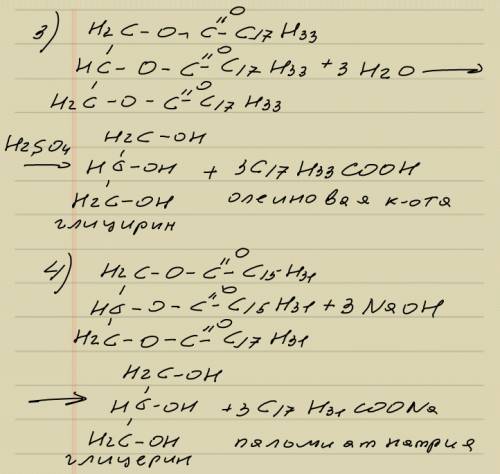 3) H2C-O-C=O C17H33
HC-O-C=O C17H33 + 3 H2O →
H2C-O-C=O C17H33
H2SO4 → H2C-OH
HC-OH + 3C17H33COOH
H2C-OH олеиновая к-ота
глицирин
4) H2C-O-C=O C15H31
HC-O-C=O C15H31 + 3 NaOH
H2C-O-C=O C17H31
H2C-OH
→ HC-OH + 3C17H31COONa
H2C-OH паломиат натрия
глицерин